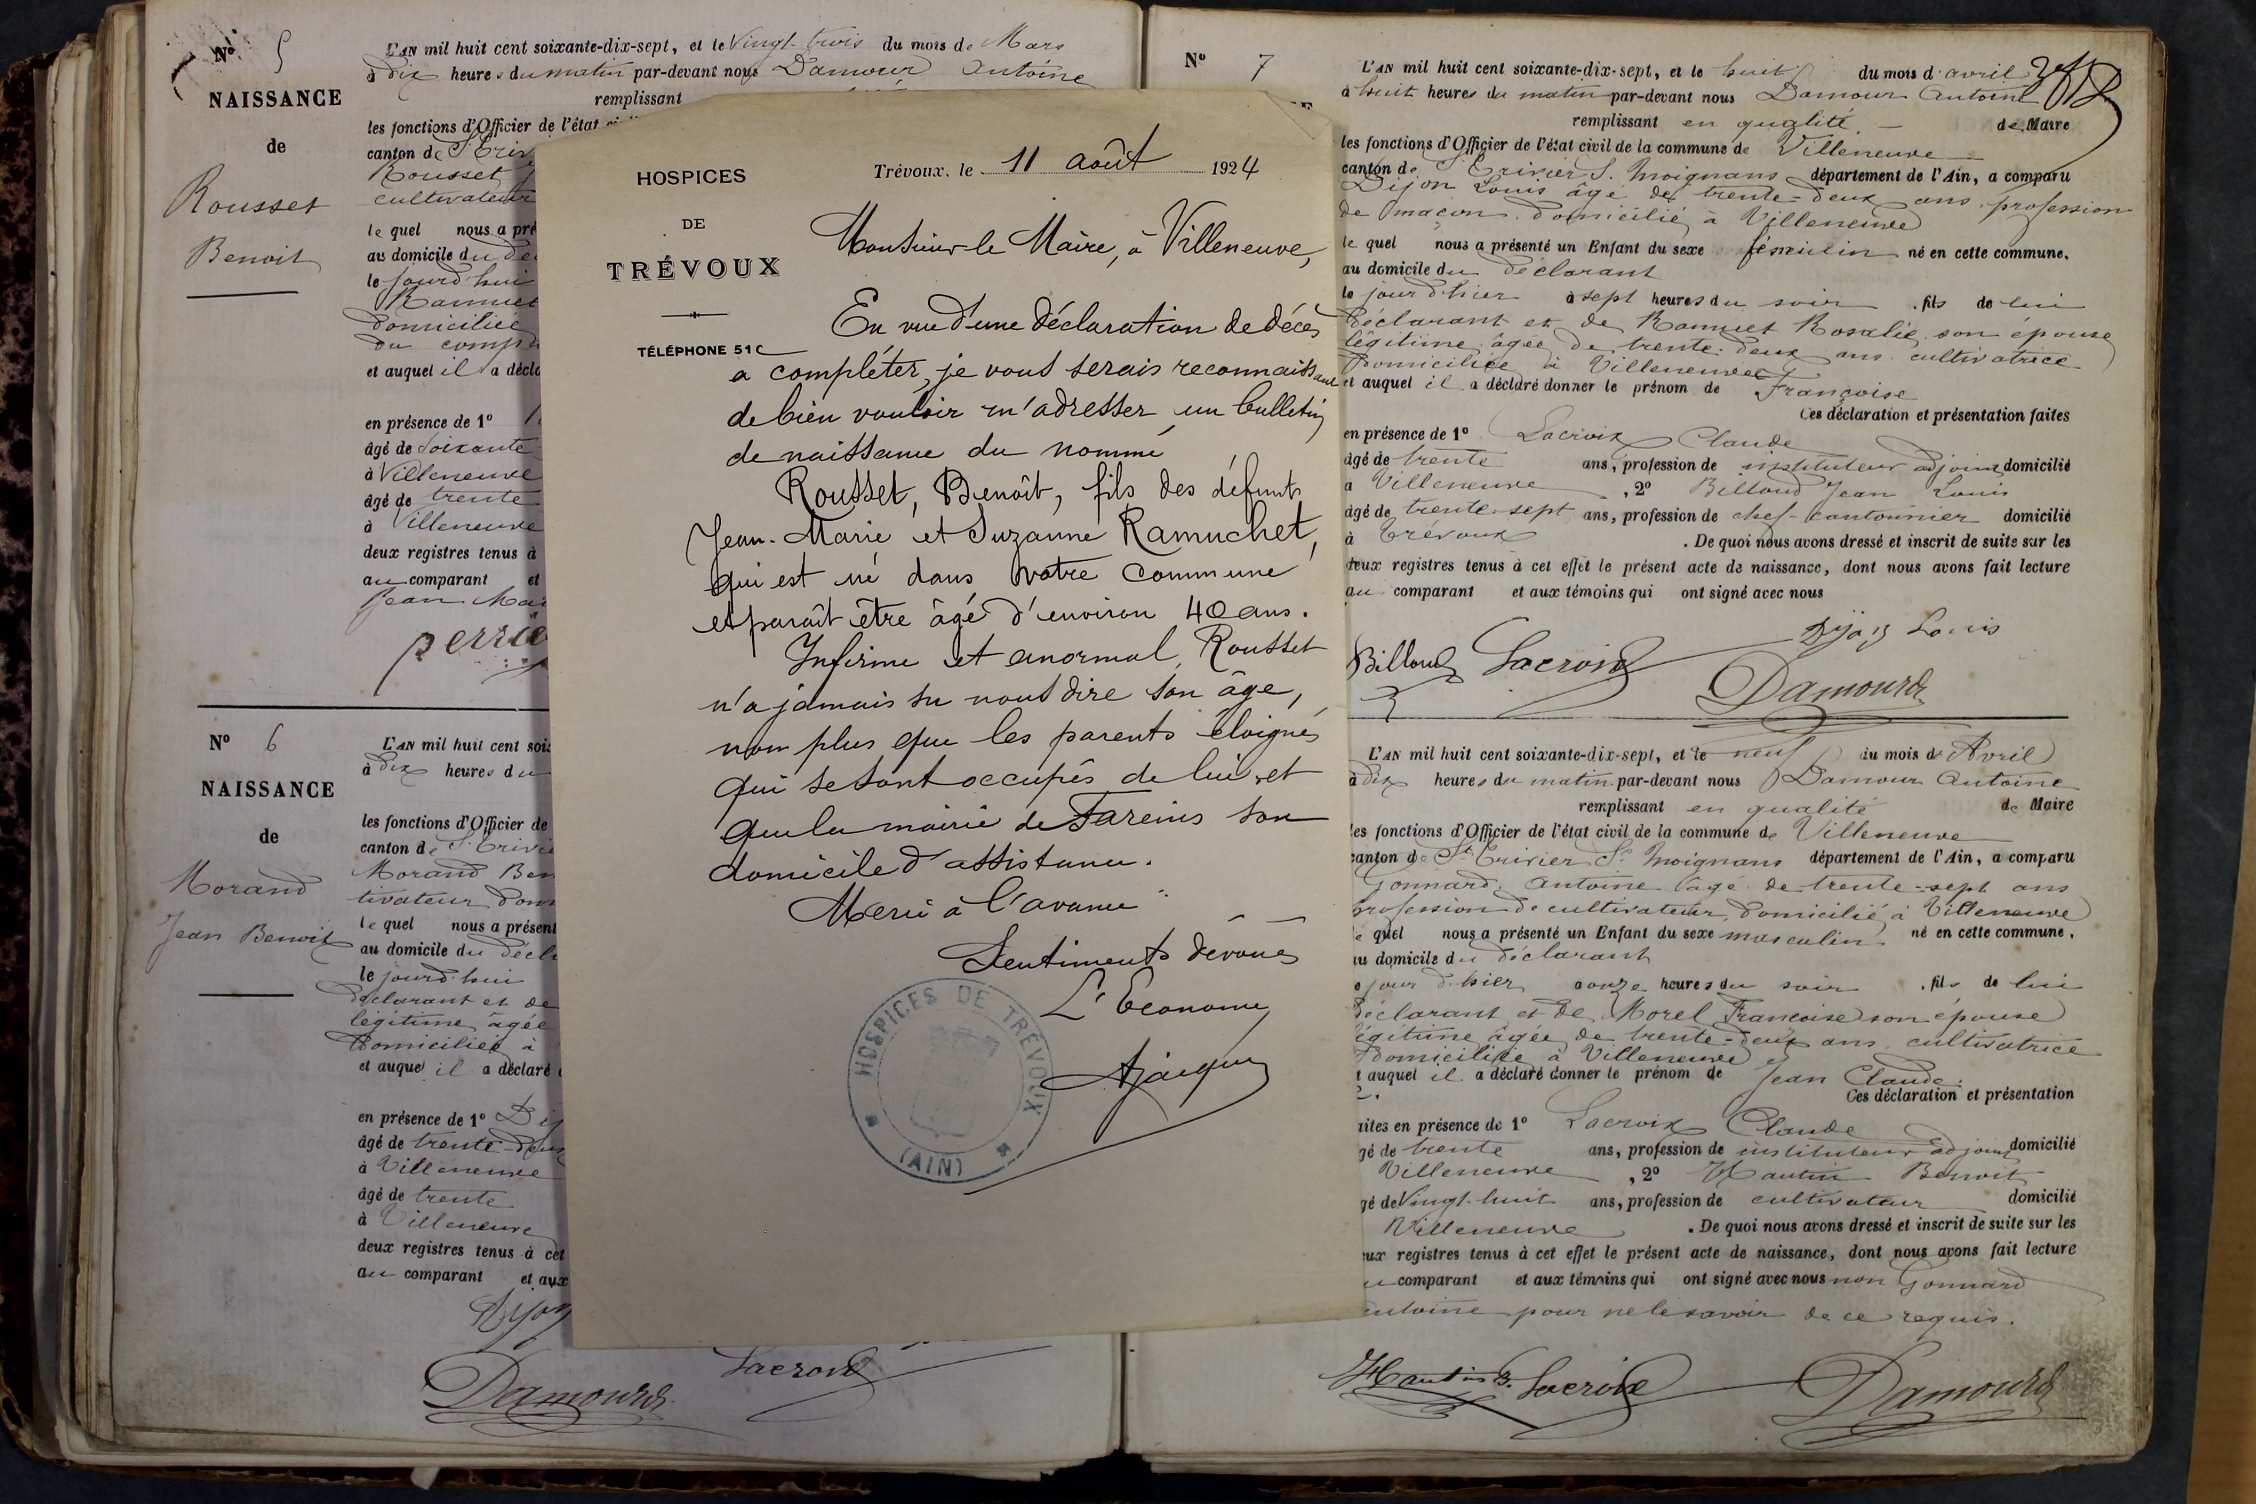 N° 5
NAISSANCE
de
Rousset
Benoit
L'AN mil huit cent soixante-dix-sept, et le Vingt-trois du mois de Mars
à dix heures du matin par-devant nous Damour Antoine
remplissant
les fonctions d'Officier de l'état
canton de St Triv
Rousset
cultivateur
le quel nous a pré
au domicile du dé
le jourd'hui
Ramuet
domiciliée
du comp
et auquel il a décla
en présence de 1°
âgé de soixante
à Villeneuve
âgé de trente
à Villeneuve
deux registres tenus à
au comparant et
Jean Mar
perrie
N° 6
NAISSANCE
de
Morand
Jean Benoit
L'AN mil huit cent soix
à dix heures du
les fonctions d'Officier de
canton de St Trivie
Morand Ben
tivateur dom
le quel nous a présent
au domicile du décla
le jourd'hui
déclarant et de
légitime âgée
domiciliée à
et auquel il a déclaré
en présence de 1° Dij
âgé de trente-deux
à Villeneuve
âgé de trente
à Villeneuve
deux registres tenus à cet
au comparant et aux
Dijon
Lacroix
Damour
HOSPICES
DE
TRÉVOUX
TÉLÉPHONE 51
Trévoux, le 11 août 1924
Monsieur le Maire, à Villeneuve,
En vue d'une déclaration de décès
a compléter, je vous serais reconnaissant
de bien vouloir m'adresser un bulletin
de naissance du nommé
Rousset, Benoît, fils des défunts
Jean-Marie et Suzanne Ramuchet,
qui est né dans votre commune
et paraît être âgé d'environ 40 ans.
Infirme et anormal, Rousset
n'a jamais su nous dire son âge,
non plus que les parents éloignés
qui se sont occupés de lui et
que la mairie de Fareins son
domicile d'assistance.
Merci à l'avance
Sentiments dévoués
L'Econome
HOSPICES DE TRÉVOUX
(AIN)
N° 7
L'AN mil huit cent soixante-dix-sept, et le huit du mois d'avril
à huit heures du matin par-devant nous Damour Antoine
remplissant en qualité de Maire
les fonctions d'Officier de l'état civil de la commune de Villeneuve
canton de St Trivier S. Moignans département de l'Ain, a comparu
Dijon Louis âgé de trente-deux ans profession
de maçon domicilié à Villeneuve
le quel nous a présenté un Enfant du sexe féminin né en cette commune,
au domicile du déclarant
le jour d'hier à sept heures du soir, fils de lui
déclarant et de Ramuet Rosalie son épouse
légitime âgée de trente-deux ans cultivatrice
domiciliée à Villeneuve
et auquel il a déclaré donner le prénom de Françoise
Ces déclaration et présentation faites
en présence de 1° Lacroix Claude
âgé de trente ans, profession de instituteur adjoint domicilié
à Villeneuve, 2° Billoud Jean Louis
âgé de trente-sept ans, profession de chef-cantonnier domicilié
à Trévoux. De quoi nous avons dressé et inscrit de suite sur les
deux registres tenus à cet effet le présent acte de naissance, dont nous avons fait lecture
au comparant et aux témoins qui ont signé avec nous
Dijon Louis
Billoud Lacroix
Damour
L'AN mil huit cent soixante-dix-sept, et le neuf du mois d'Avril
à dix heures du matin par-devant nous Damour Antoine
remplissant en qualité de Maire
les fonctions d'Officier de l'état civil de la commune de Villeneuve
canton de St Trivier S. Moignans département de l'Ain, a comparu
Gonnard Antoine âgé de trente-sept ans
profession de cultivateur domicilié à Villeneuve
le quel nous a présenté un Enfant du sexe masculin né en cette commune,
au domicile du déclarant
le jour d'hier à onze heures du soir, fils de lui
déclarant et de Morel Françoise son épouse
légitime âgée de trente-deux ans cultivatrice
domiciliée à Villeneuve
et auquel il a déclaré donner le prénom de Jean Claude.
Ces déclaration et présentation
aites en présence de 1° Lacroix Claude
gé de trente ans, profession de instituteur adjoint domicilié
Villeneuve, 2° Hautin Benoit
gé de Vingt-huit ans, profession de cultivateur domicilié
Villeneuve. De quoi nous avons dressé et inscrit de suite sur les
eux registres tenus à cet effet le présent acte de naissance, dont nous avons fait lecture
au comparant et aux témoins qui ont signé avec nous non Gonnard
antoine pour ne le savoir de ce requis.
Hautin B. Lacroix Damour